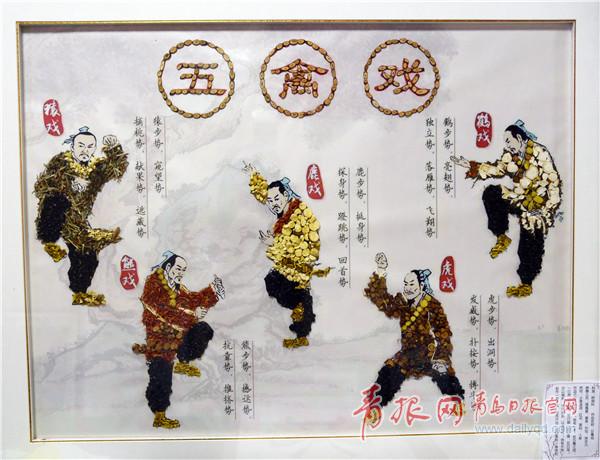 五禽戏
猿戏
猿步势、窥望势
摘桃势、献果势、逃藏势
鹤戏
鹤步势、亮翅势
独立势、落雁势、飞翔势
鹿戏
鹿步势、挺身势
探身势、蹬跳势、回首势
熊戏
熊步势、撼运势
抗靠势、推挤势
虎戏
虎步势、出洞势
发威势、扑按势、搏斗
青报网 青岛日报官网
www.dailyqd.com